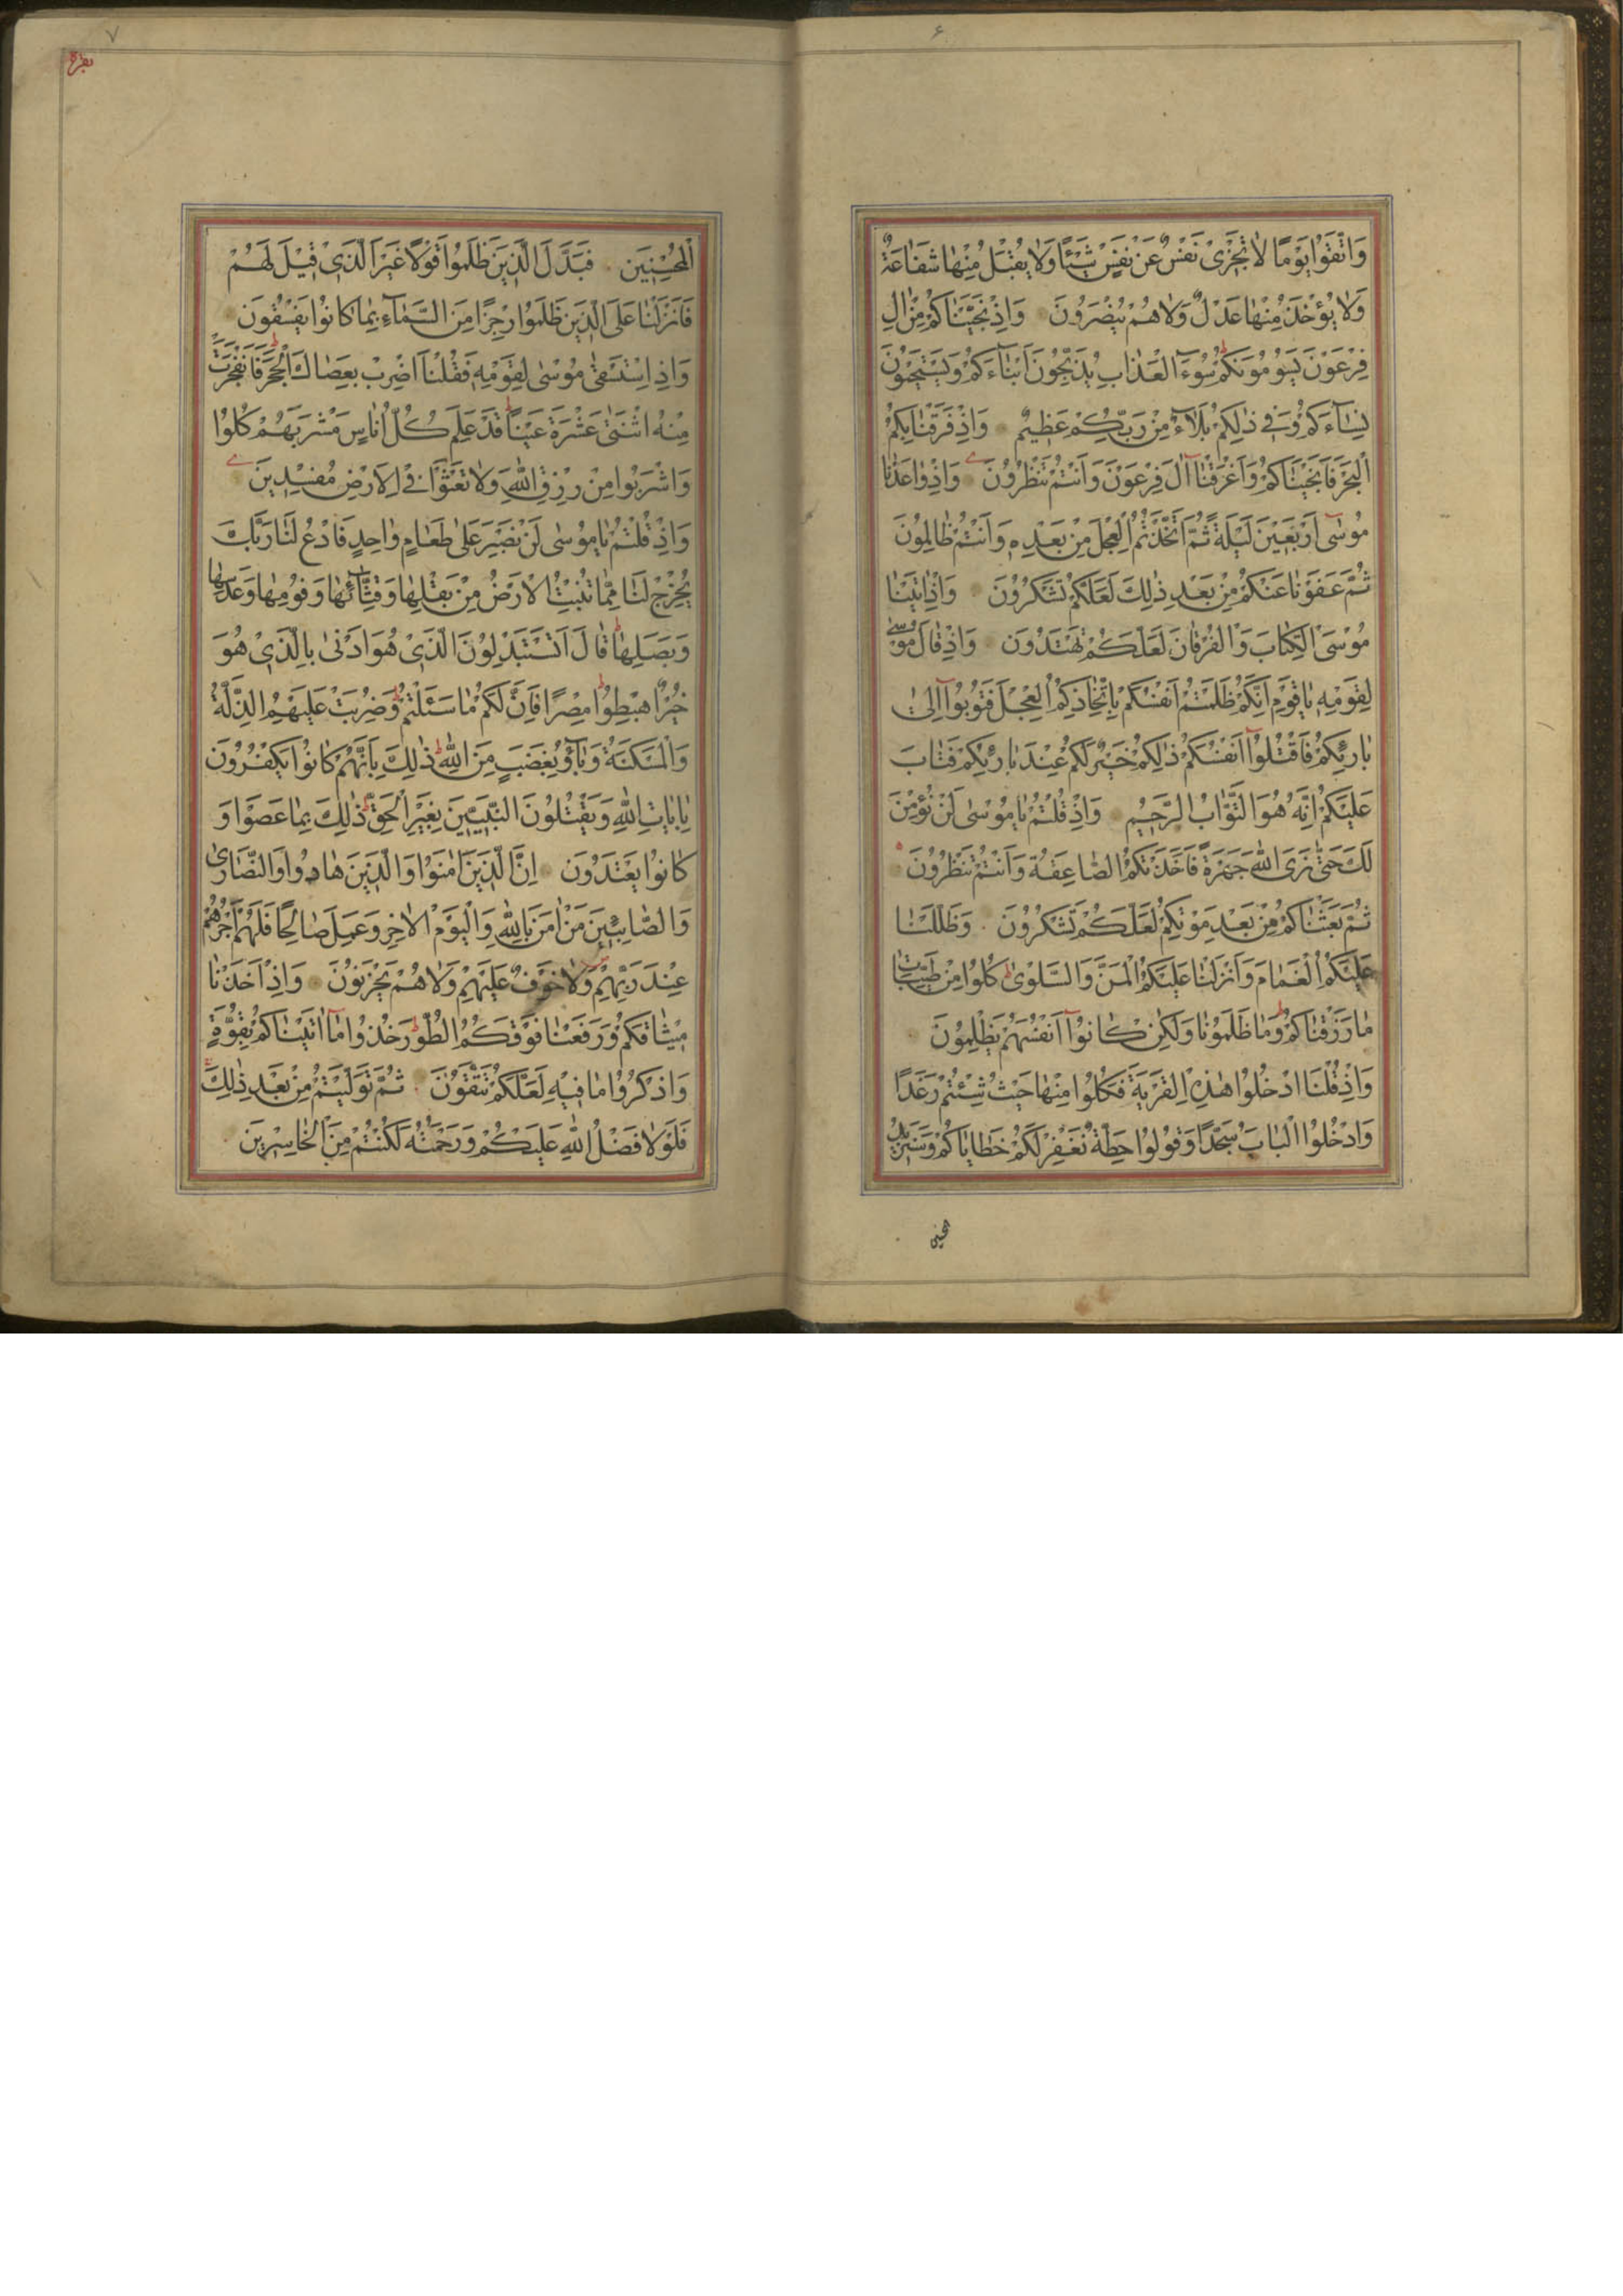 ۶
وَاتَّقُوا يَوْمًا لَا تَجْزِي نَفْسٌ عَنْ نَفْسٍ شَيْئًا وَلَا يُقْبَلُ مِنْهَا شَفَاعَةٌ
وَلَا يُؤْخَذُ مِنْهَا عَدْلٌ وَلَا هُمْ يُنْصَرُونَ وَإِذْ نَجَّيْنَاكُمْ مِنْ اٰلِ
فِرْعَوْنَ يَسُومُونَكُمْ سُوءَ الْعَذَابِ يُذَبِّحُونَ أَبْنَاءَكُمْ وَيَسْتَحْيُونَ
نِسَاءَكُمْ وَفِي ذٰلِكُمْ بَلَاءٌ مِنْ رَبِّكُمْ عَظِيمٌ وَإِذْ فَرَقْنَا بِكُمُ
الْبَحْرَ فَأَنْجَيْنَاكُمْ وَأَغْرَقْنَا اٰلَ فِرْعَوْنَ وَأَنْتُمْ تَنْظُرُونَ وَإِذْ وَاعَدْنَا
مُوسٰى أَرْبَعِينَ لَيْلَةً ثُمَّ اتَّخَذْتُمُ الْعِجْلَ مِنْ بَعْدِهِ وَأَنْتُمْ ظَالِمُونَ
ثُمَّ عَفَوْنَا عَنْكُمْ مِنْ بَعْدِ ذٰلِكَ لَعَلَّكُمْ تَشْكُرُونَ وَإِذْ اٰتَيْنَا
مُوسَى الْكِتَابَ وَالْفُرْقَانَ لَعَلَّكُمْ تَهْتَدُونَ وَإِذْ قَالَ مُوسٰى
لِقَوْمِهِ يَا قَوْمِ إِنَّكُمْ ظَلَمْتُمْ أَنْفُسَكُمْ بِاتِّخَاذِكُمُ الْعِجْلَ فَتُوبُوا إِلٰى
بَارِئِكُمْ فَاقْتُلُوا أَنْفُسَكُمْ ذٰلِكُمْ خَيْرٌ لَكُمْ عِنْدَ بَارِئِكُمْ فَتَابَ
عَلَيْكُمْ إِنَّهُ هُوَ التَّوَّابُ الرَّحِيمُ وَإِذْ قُلْتُمْ يَا مُوسٰى لَنْ نُؤْمِنَ
لَكَ حَتّٰى نَرَى اللّٰهَ جَهْرَةً فَأَخَذَتْكُمُ الصَّاعِقَةُ وَأَنْتُمْ تَنْظُرُونَ
ثُمَّ بَعَثْنَاكُمْ مِنْ بَعْدِ مَوْتِكُمْ لَعَلَّكُمْ تَشْكُرُونَ وَظَلَّلْنَا
عَلَيْكُمُ الْغَمَامَ وَأَنْزَلْنَا عَلَيْكُمُ الْمَنَّ وَالسَّلْوٰى كُلُوا مِنْ طَيِّبَاتِ
مَا رَزَقْنَاكُمْ وَمَا ظَلَمُونَا وَلٰكِنْ كَانُوا أَنْفُسَهُمْ يَظْلِمُونَ
وَإِذْ قُلْنَا ادْخُلُوا هٰذِهِ الْقَرْيَةَ فَكُلُوا مِنْهَا حَيْثُ شِئْتُمْ رَغَدًا
وَادْخُلُوا الْبَابَ سُجَّدًا وَقُولُوا حِطَّةٌ نَغْفِرْ لَكُمْ خَطَايَاكُمْ وَسَنَزِيدُ
المحسنین
۷
بقره
الْمُحْسِنِينَ فَبَدَّلَ الَّذِينَ ظَلَمُوا قَوْلًا غَيْرَ الَّذِي قِيلَ لَهُمْ
فَأَنْزَلْنَا عَلَى الَّذِينَ ظَلَمُوا رِجْزًا مِنَ السَّمَاءِ بِمَا كَانُوا يَفْسُقُونَ
وَإِذِ اسْتَسْقٰى مُوسٰى لِقَوْمِهِ فَقُلْنَا اضْرِبْ بِعَصَاكَ الْحَجَرَ فَانْفَجَرَتْ
مِنْهُ اثْنَتَا عَشْرَةَ عَيْنًا قَدْ عَلِمَ كُلُّ أُنَاسٍ مَشْرَبَهُمْ كُلُوا
وَاشْرَبُوا مِنْ رِزْقِ اللّٰهِ وَلَا تَعْثَوْا فِي الْأَرْضِ مُفْسِدِينَ
وَإِذْ قُلْتُمْ يَا مُوسٰى لَنْ نَصْبِرَ عَلٰى طَعَامٍ وَاحِدٍ فَادْعُ لَنَا رَبَّكَ
يُخْرِجْ لَنَا مِمَّا تُنْبِتُ الْأَرْضُ مِنْ بَقْلِهَا وَقِثَّائِهَا وَفُومِهَا وَعَدَسِهَا
وَبَصَلِهَا قَالَ أَتَسْتَبْدِلُونَ الَّذِي هُوَ أَدْنٰى بِالَّذِي هُوَ
خَيْرٌ اهْبِطُوا مِصْرًا فَإِنَّ لَكُمْ مَا سَئَلْتُمْ وَضُرِبَتْ عَلَيْهِمُ الذِّلَّةُ
وَالْمَسْكَنَةُ وَبَاؤُ بِغَضَبٍ مِنَ اللّٰهِ ذٰلِكَ بِأَنَّهُمْ كَانُوا يَكْفُرُونَ
بِاٰيَاتِ اللّٰهِ وَيَقْتُلُونَ النَّبِيِّينَ بِغَيْرِ الْحَقِّ ذٰلِكَ بِمَا عَصَوْا وَ
كَانُوا يَعْتَدُونَ إِنَّ الَّذِينَ اٰمَنُوا وَالَّذِينَ هَادُوا وَالنَّصَارٰى
وَالصَّابِئِينَ مَنْ اٰمَنَ بِاللّٰهِ وَالْيَوْمِ الْاٰخِرِ وَعَمِلَ صَالِحًا فَلَهُمْ أَجْرُهُمْ
عِنْدَ رَبِّهِمْ وَلَا خَوْفٌ عَلَيْهِمْ وَلَا هُمْ يَحْزَنُونَ وَإِذْ أَخَذْنَا
مِيثَاقَكُمْ وَرَفَعْنَا فَوْقَكُمُ الطُّورَ خُذُوا مَا اٰتَيْنَاكُمْ بِقُوَّةٍ
وَاذْكُرُوا مَا فِيهِ لَعَلَّكُمْ تَتَّقُونَ ثُمَّ تَوَلَّيْتُمْ مِنْ بَعْدِ ذٰلِكَ
فَلَوْلَا فَضْلُ اللّٰهِ عَلَيْكُمْ وَرَحْمَتُهُ لَكُنْتُمْ مِنَ الْخَاسِرِينَ